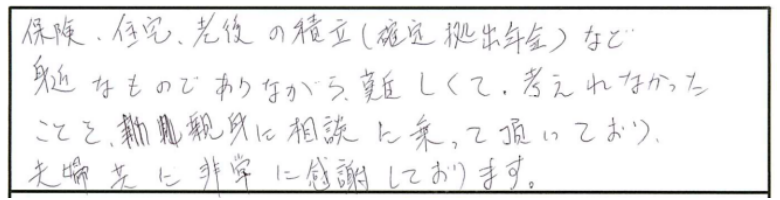 保険、住宅、老後の積立(確定拠出年金)など
身近なものでありながら、難しくて、考えれなかった
ことを、親身に相談に乗って頂いており、
夫婦共に非常に感謝しております。